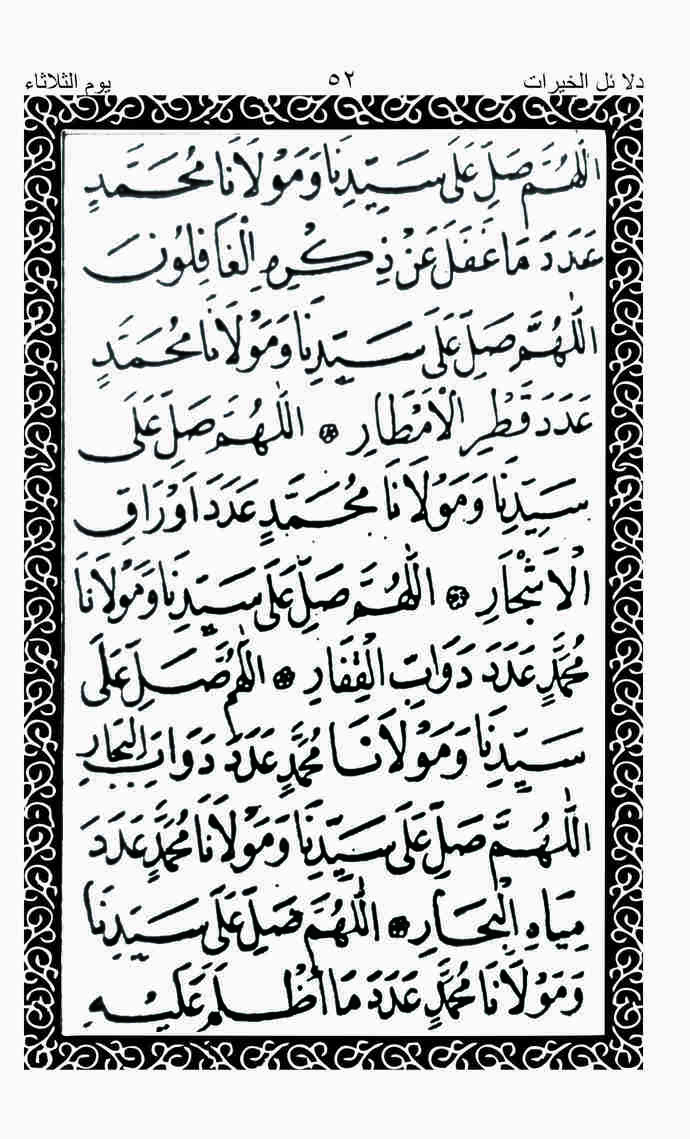 دلائل الخيرات ٥٢ يوم الثلاثاء
اَللّٰهُمَّ صَلِّ عَلَى سَيِّدِنَا وَمَوْلَانَا مُحَمَّدٍ
عَدَدَ مَا غَفَلَ عَنْ ذِكْرِهِ الْغَافِلُونَ
اَللّٰهُمَّ صَلِّ عَلَى سَيِّدِنَا وَمَوْلَانَا مُحَمَّدٍ
عَدَدَ قَطْرِ الْاَمْطَارِ ۞ اَللّٰهُمَّ صَلِّ عَلَى
سَيِّدِنَا وَمَوْلَانَا مُحَمَّدٍ عَدَدَ اَوْرَاقِ
الْاَشْجَارِ ۞ اَللّٰهُمَّ صَلِّ عَلَى سَيِّدِنَا وَمَوْلَانَا
مُحَمَّدٍ عَدَدَ دَوَاتِ الْقِفَارِ ۞ اَللّٰهُمَّ صَلِّ عَلَى
سَيِّدِنَا وَمَوْلَانَا مُحَمَّدٍ عَدَدَ دَوَاتِ الْبِحَارِ
اَللّٰهُمَّ صَلِّ عَلَى سَيِّدِنَا وَمَوْلَانَا مُحَمَّدٍ عَدَدَ
مِيَاهِ الْبِحَارِ ۞ اَللّٰهُمَّ صَلِّ عَلَى سَيِّدِنَا
وَمَوْلَانَا مُحَمَّدٍ عَدَدَ مَا اَظْلَمَ عَلَيْهِ